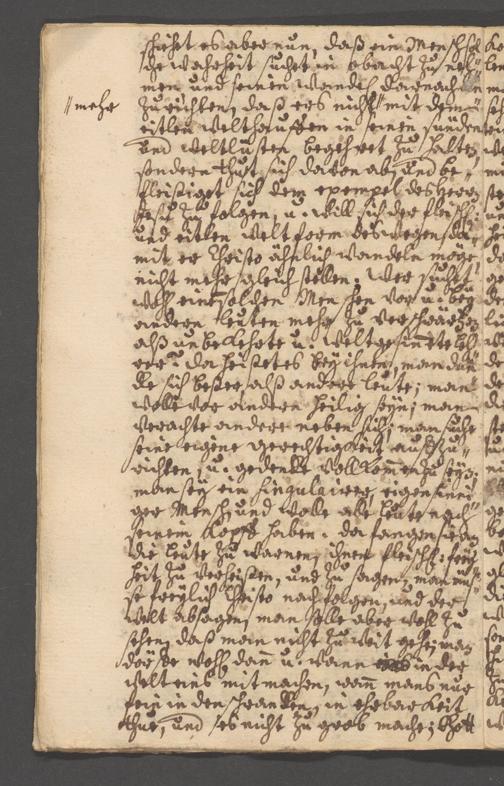 schiehet es aber nun, daß ein Mensch sol-
che Wahrheit suchet in obacht zu neh-
men und seinen Wandel darnach
"mehr
zu richten, daß ers nicht " mit dem
eitlen Welthauffen in seinen sünden
und Weltlüsten begehret zu halten,
sondern thut sich davon ab, und be-
fleißiget sich dem exempel des Herrn
Jesu zu folgen, u. will sich der fleisch-
und eitlen Weltform deswegen, daß
mit er Christo ähnlich wandeln möge
nicht mehr gleich stellen. Wer suchet
wohl einen solchen Menschen vor u. bey
andern Leuten mehr zu verschwärtzen
alß unbekehrte u. Weltgesinnte
da heisset es bey ihnen, man dün-
cke sich besser alß andere Leute; man
wolle vor andern heilig seyn; man
verachte andere neben sich; man suche
seine eigene Gerechtigkeit aufzu-
richten, u. gedencke vollkommen zu seyn,
man sey ein singulairer, eigensinni-
ger Mensch, und wolle alle Leute nach
seinem Kopff haben. da fangen sie an
die Leute zu warnen, ihnen fleischl. frey-
heit zu verheissen, und zu sagen, man müs-
se freylich Christo nachfolgen, und der
Welt absagen, man solle aber wohl zu
sehen, daß man nicht zu weit gehe; man
dörffe wohl dann u. wann in der
Welt eins mit machen, wann mans nur
fein in den schrancken, in ehrbarkeit
thue, und es nicht zu grob mache; Gott